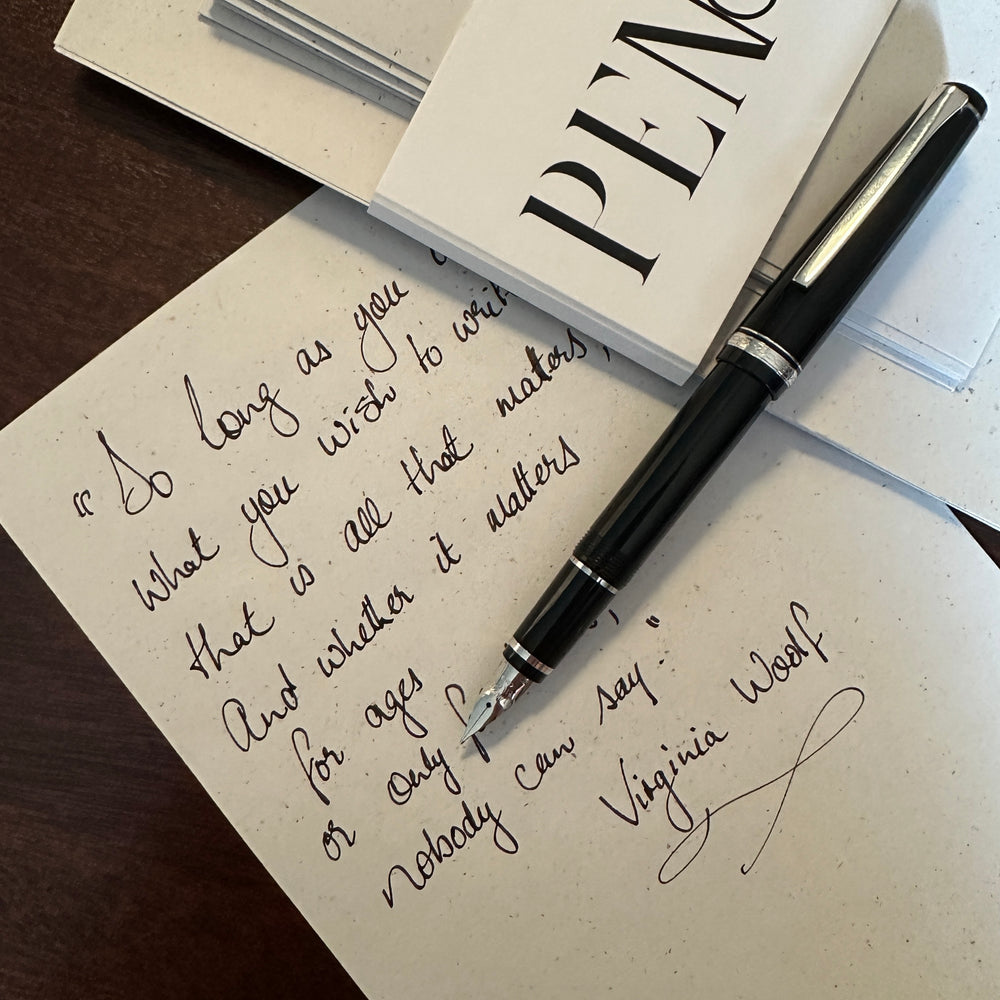 PEN
"So long as you
what you wish to writ
that is all that matters,
And whether it matters
for ages
or only f
nobody can say."
Virginia Woolf